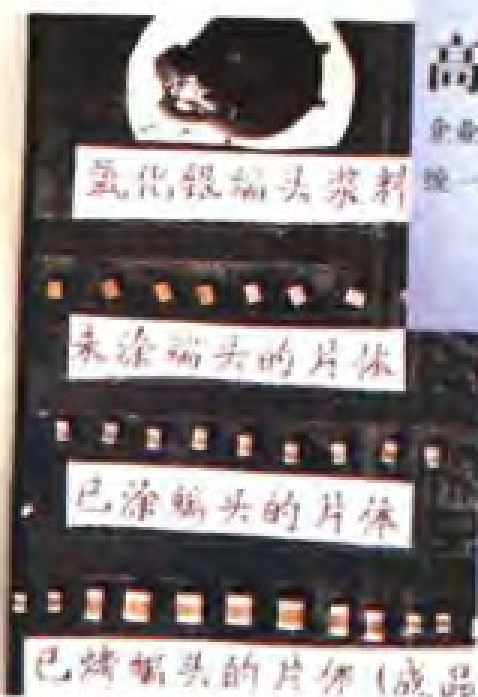 氧化银端头浆料
未涂端头的片体
已涂端头的片体
已烤端头的片体(成品
高
企业
统一